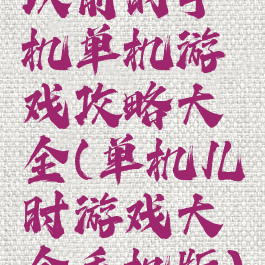 以前的手
机单机游
戏攻略大
全(单机儿
时游戏大
全手机版)